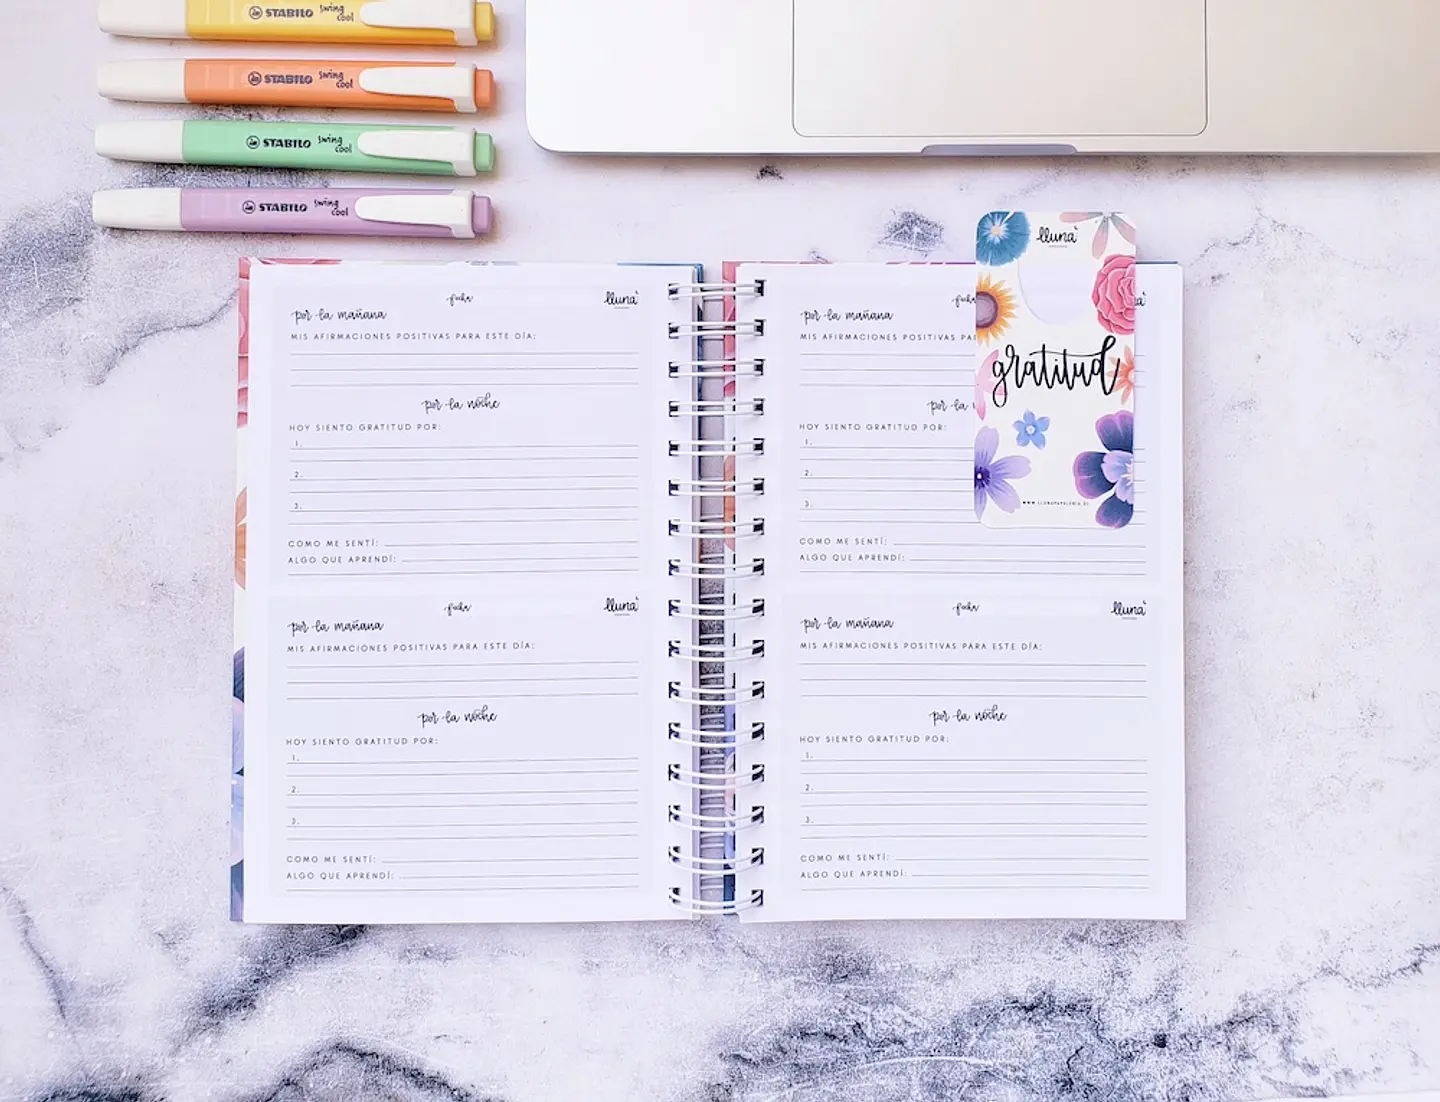 STABILO swing cool
STABILO swing cool
STABILO swing cool
STABILO swing cool
fecha
lluna
por la mañana
MIS AFIRMACIONES POSITIVAS PARA ESTE DÍA:
por la noche
HOY SIENTO GRATITUD POR:
1.
2.
3.
COMO ME SENTÍ:
ALGO QUE APRENDÍ:
fecha
lluna
por la mañana
MIS AFIRMACIONES POSITIVAS PARA ESTE DÍA:
por la noche
HOY SIENTO GRATITUD POR:
1.
2.
3.
COMO ME SENTÍ:
ALGO QUE APRENDÍ:
por la mañana
MIS AFIRMACIONES POSITIVAS
por la
HOY SIENTO GRATITUD POR:
1.
2.
3.
COMO ME SENTÍ:
ALGO QUE APRENDÍ:
lluna
gratitud
WWW.LLUNAPAPELERIA.ES
fecha
lluna
por la mañana
MIS AFIRMACIONES POSITIVAS PARA ESTE DÍA:
por la noche
HOY SIENTO GRATITUD POR:
1.
2.
3.
COMO ME SENTÍ:
ALGO QUE APRENDÍ: